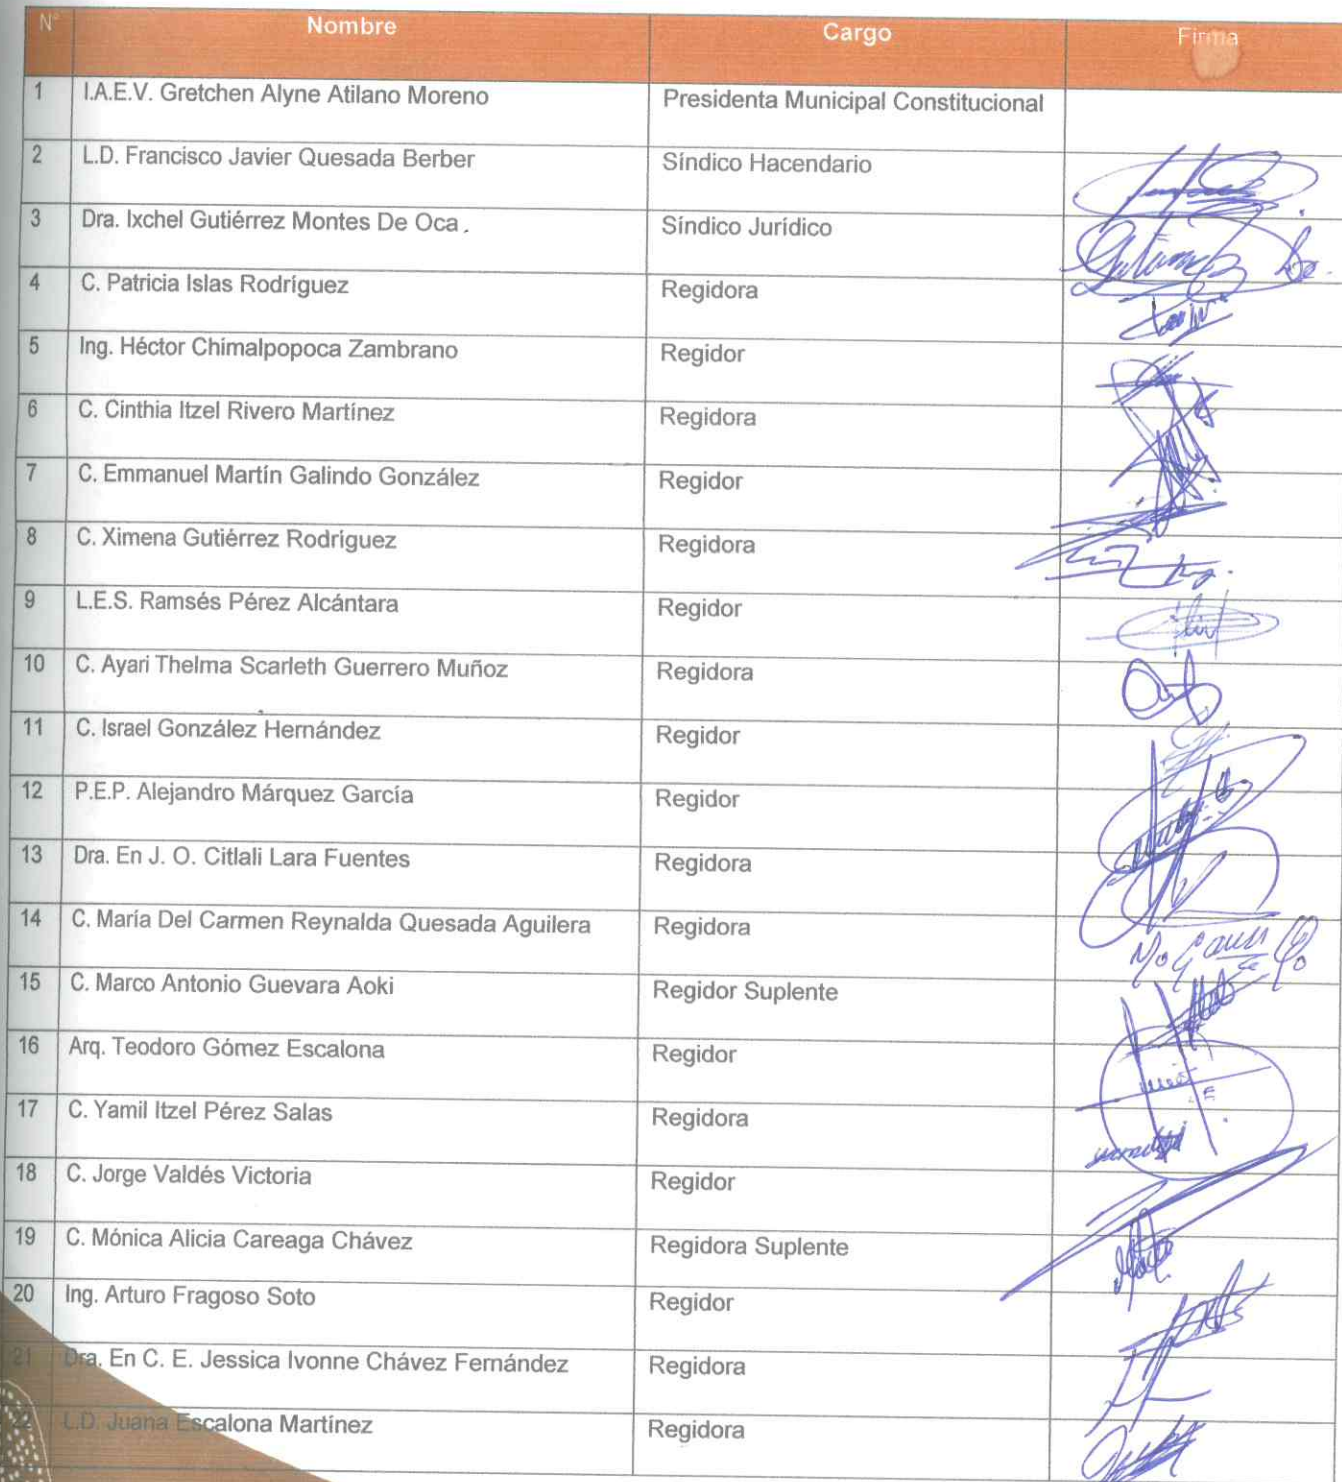 N° Nombre Cargo Firma
1 I.A.E.V. Gretchen Alyne Atilano Moreno Presidenta Municipal Constitucional
2 L.D. Francisco Javier Quesada Berber Síndico Hacendario
3 Dra. Ixchel Gutiérrez Montes De Oca. Síndico Jurídico
4 C. Patricia Islas Rodríguez Regidora
5 Ing. Héctor Chimalpopoca Zambrano Regidor
6 C. Cinthia Itzel Rivero Martínez Regidora
7 C. Emmanuel Martín Galindo González Regidor
8 C. Ximena Gutiérrez Rodríguez Regidora
9 L.E.S. Ramsés Pérez Alcántara Regidor
10 C. Ayari Thelma Scarleth Guerrero Muñoz Regidora
11 C. Israel González Hernández Regidor
12 P.E.P. Alejandro Márquez García Regidor
13 Dra. En J. O. Citlali Lara Fuentes Regidora
14 C. María Del Carmen Reynalda Quesada Aguilera Regidora
15 C. Marco Antonio Guevara Aoki Regidor Suplente
16 Arq. Teodoro Gómez Escalona Regidor
17 C. Yamil Itzel Pérez Salas Regidora
18 C. Jorge Valdés Victoria Regidor
19 C. Mónica Alicia Careaga Chávez Regidora Suplente
20 Ing. Arturo Fragoso Soto Regidor
21 Dra. En C. E. Jessica Ivonne Chávez Fernández Regidora
22 L.D. Juana Escalona Martínez Regidora